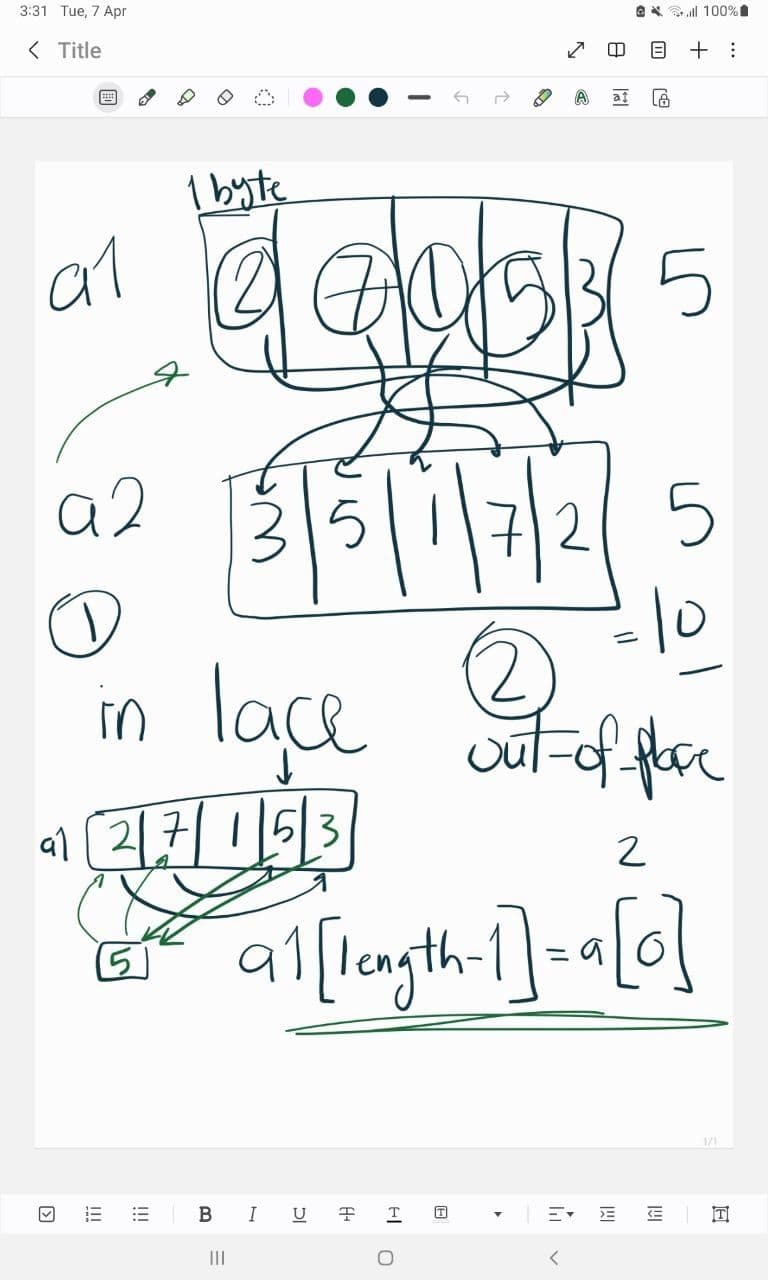 3:31 Tue, 7 Apr 100%
Title
1 byte
a1 2 7 1 5 3 5
a2 3 5 1 7 2 5
= 10
1 2
in lace out-of-place
a1 2 7 1 5 3
2
5
a1[length-1] = a[0]
1/1
B I U T T T